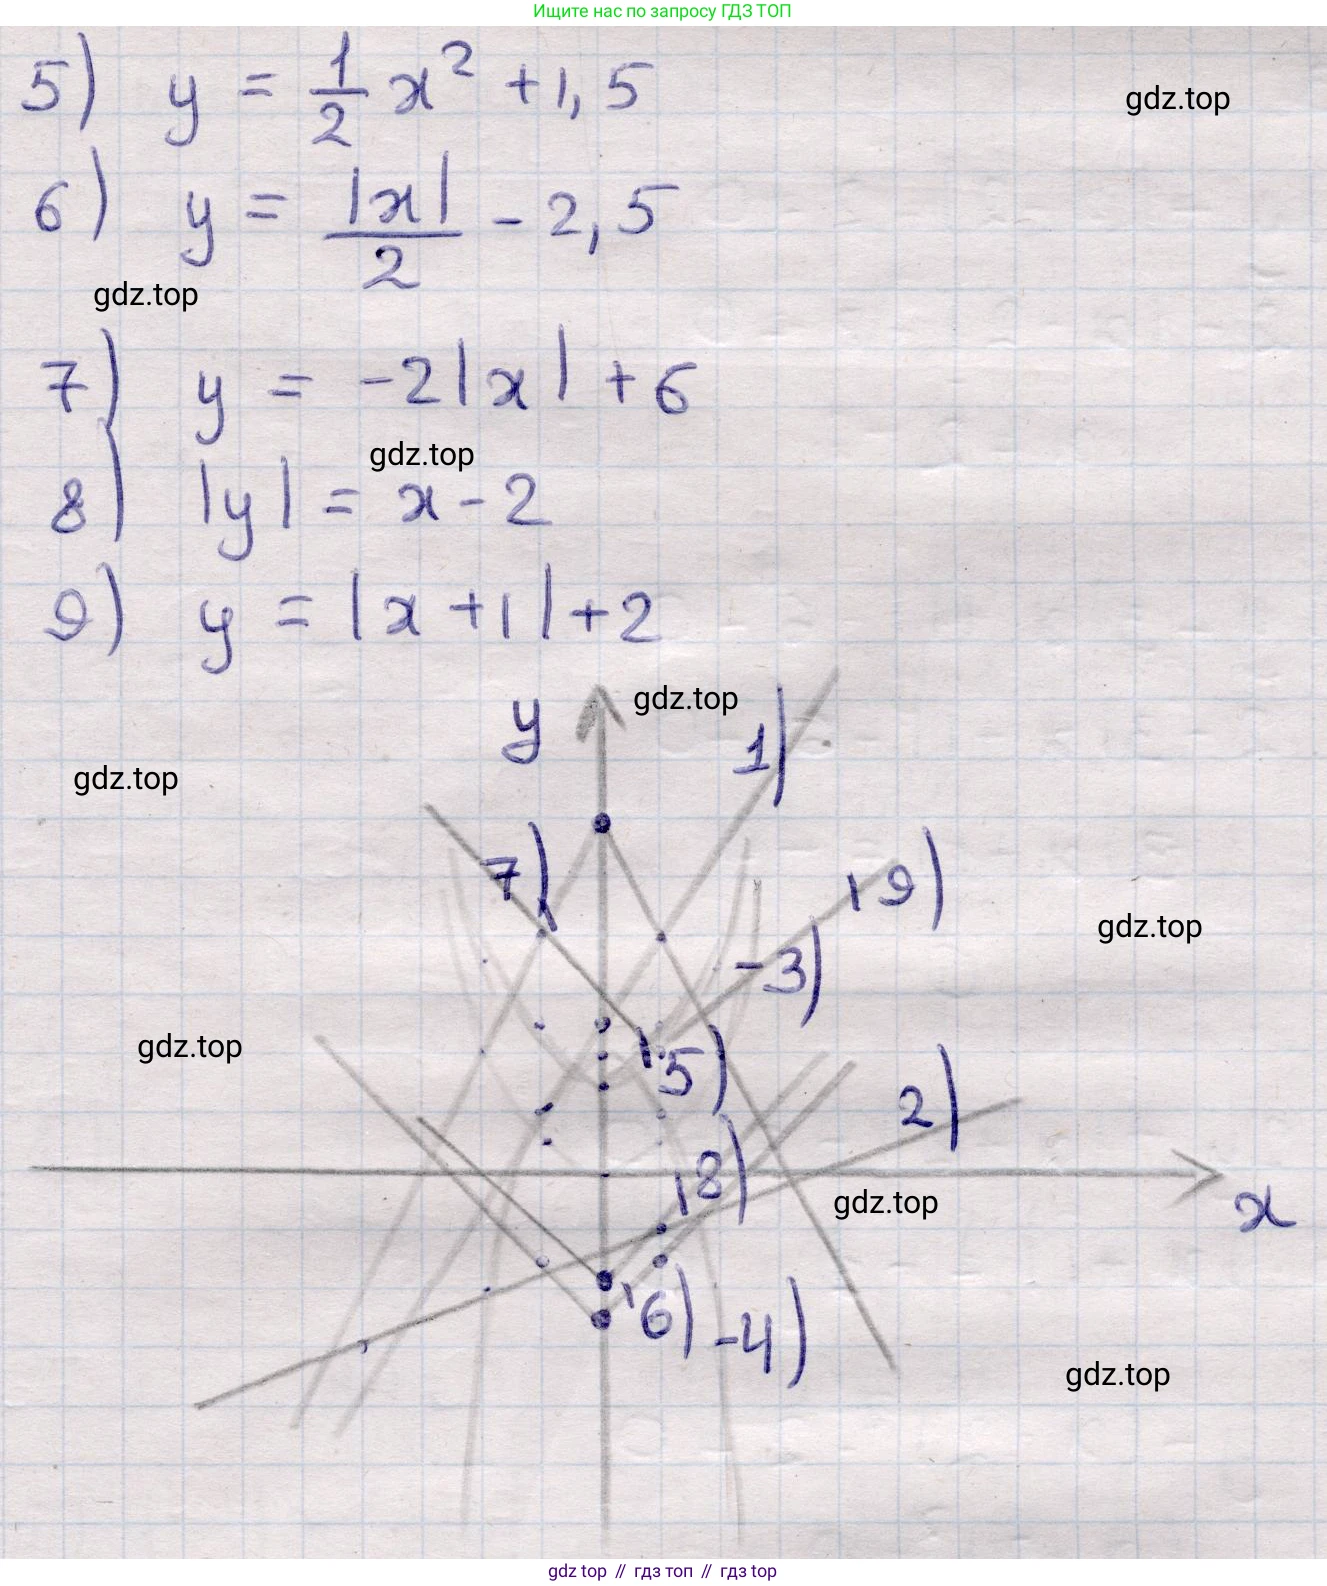 Ищите нас по запросу ГДЗ ТОП
5) y = 1/2 x² + 1,5
gdz.top
6) y = |x|/2 - 2,5
gdz.top
7) y = -2|x| + 6
gdz.top
8) |y| = x - 2
9) y = |x + 1| + 2
y
gdz.top
1)
gdz.top
7)
9)
gdz.top
-3)
gdz.top
5)
2)
8)
gdz.top
x
6)
-4)
gdz.top
gdz top // гдз топ // gdz top